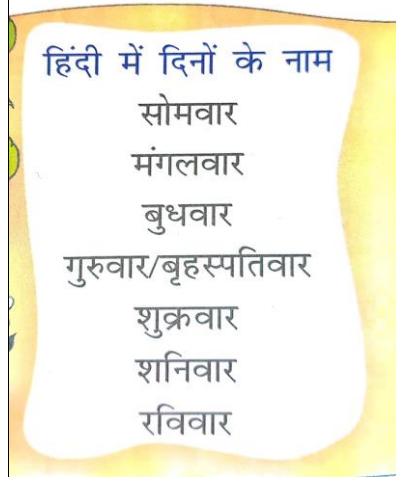 हिंदी में दिनों के नाम
सोमवार
मंगलवार
बुधवार
गुरुवार/बृहस्पतिवार
शुक्रवार
शनिवार
रविवार